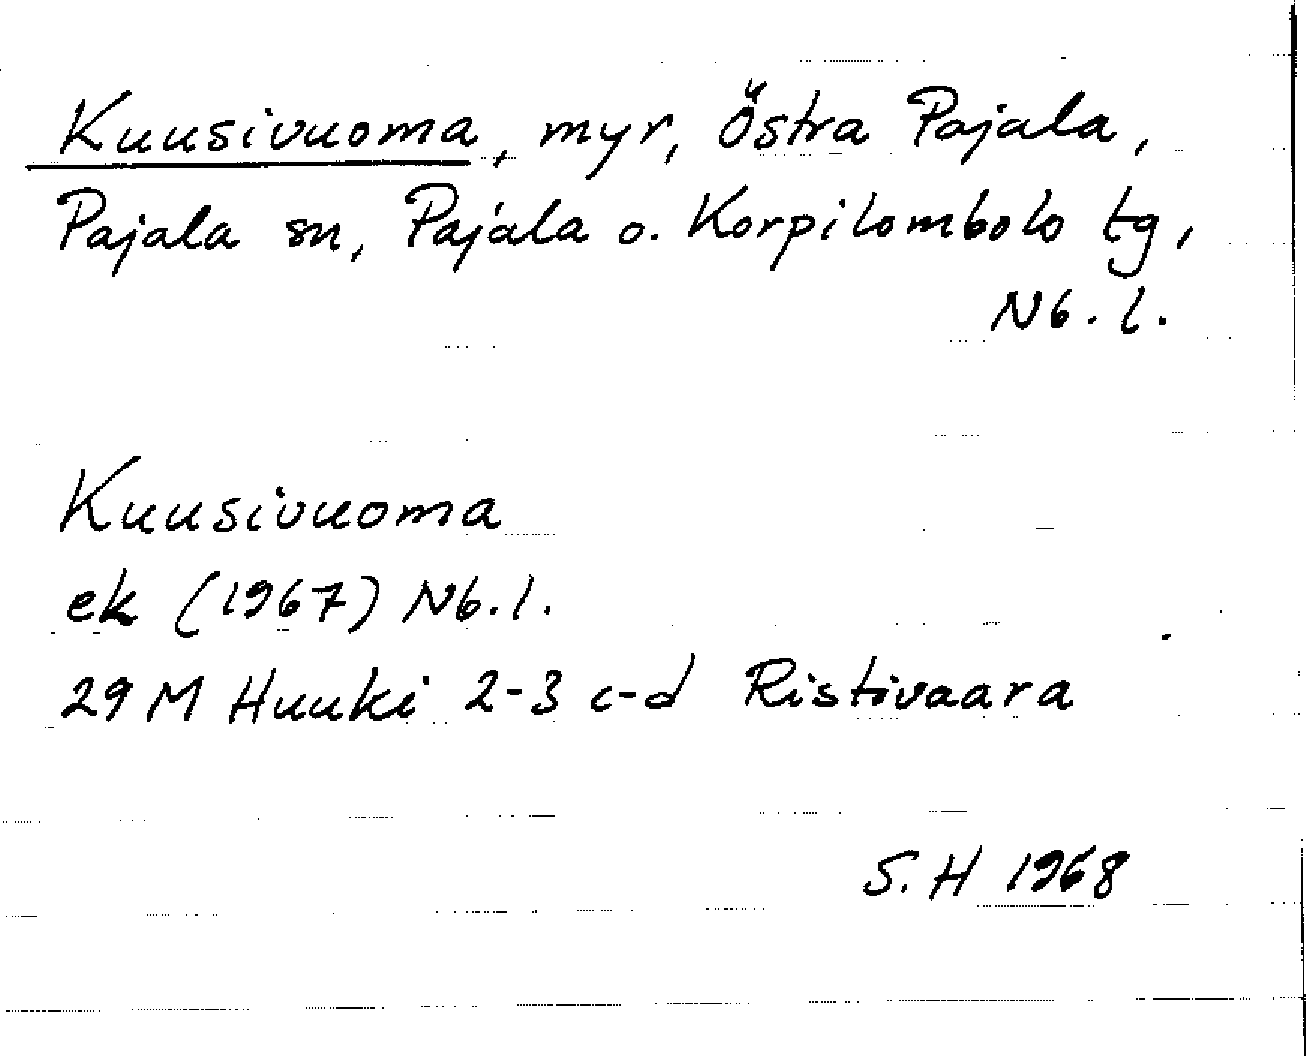 Kuusivuoma, myr, Östra Pajala,
Pajala sn, Pajala o. Korpilombolo tg,
Nb. l.
Kuusivuoma
ek (1967) Nb. l.
29 M Huuki 2-3 c-d Ristivaara
S. H 1968